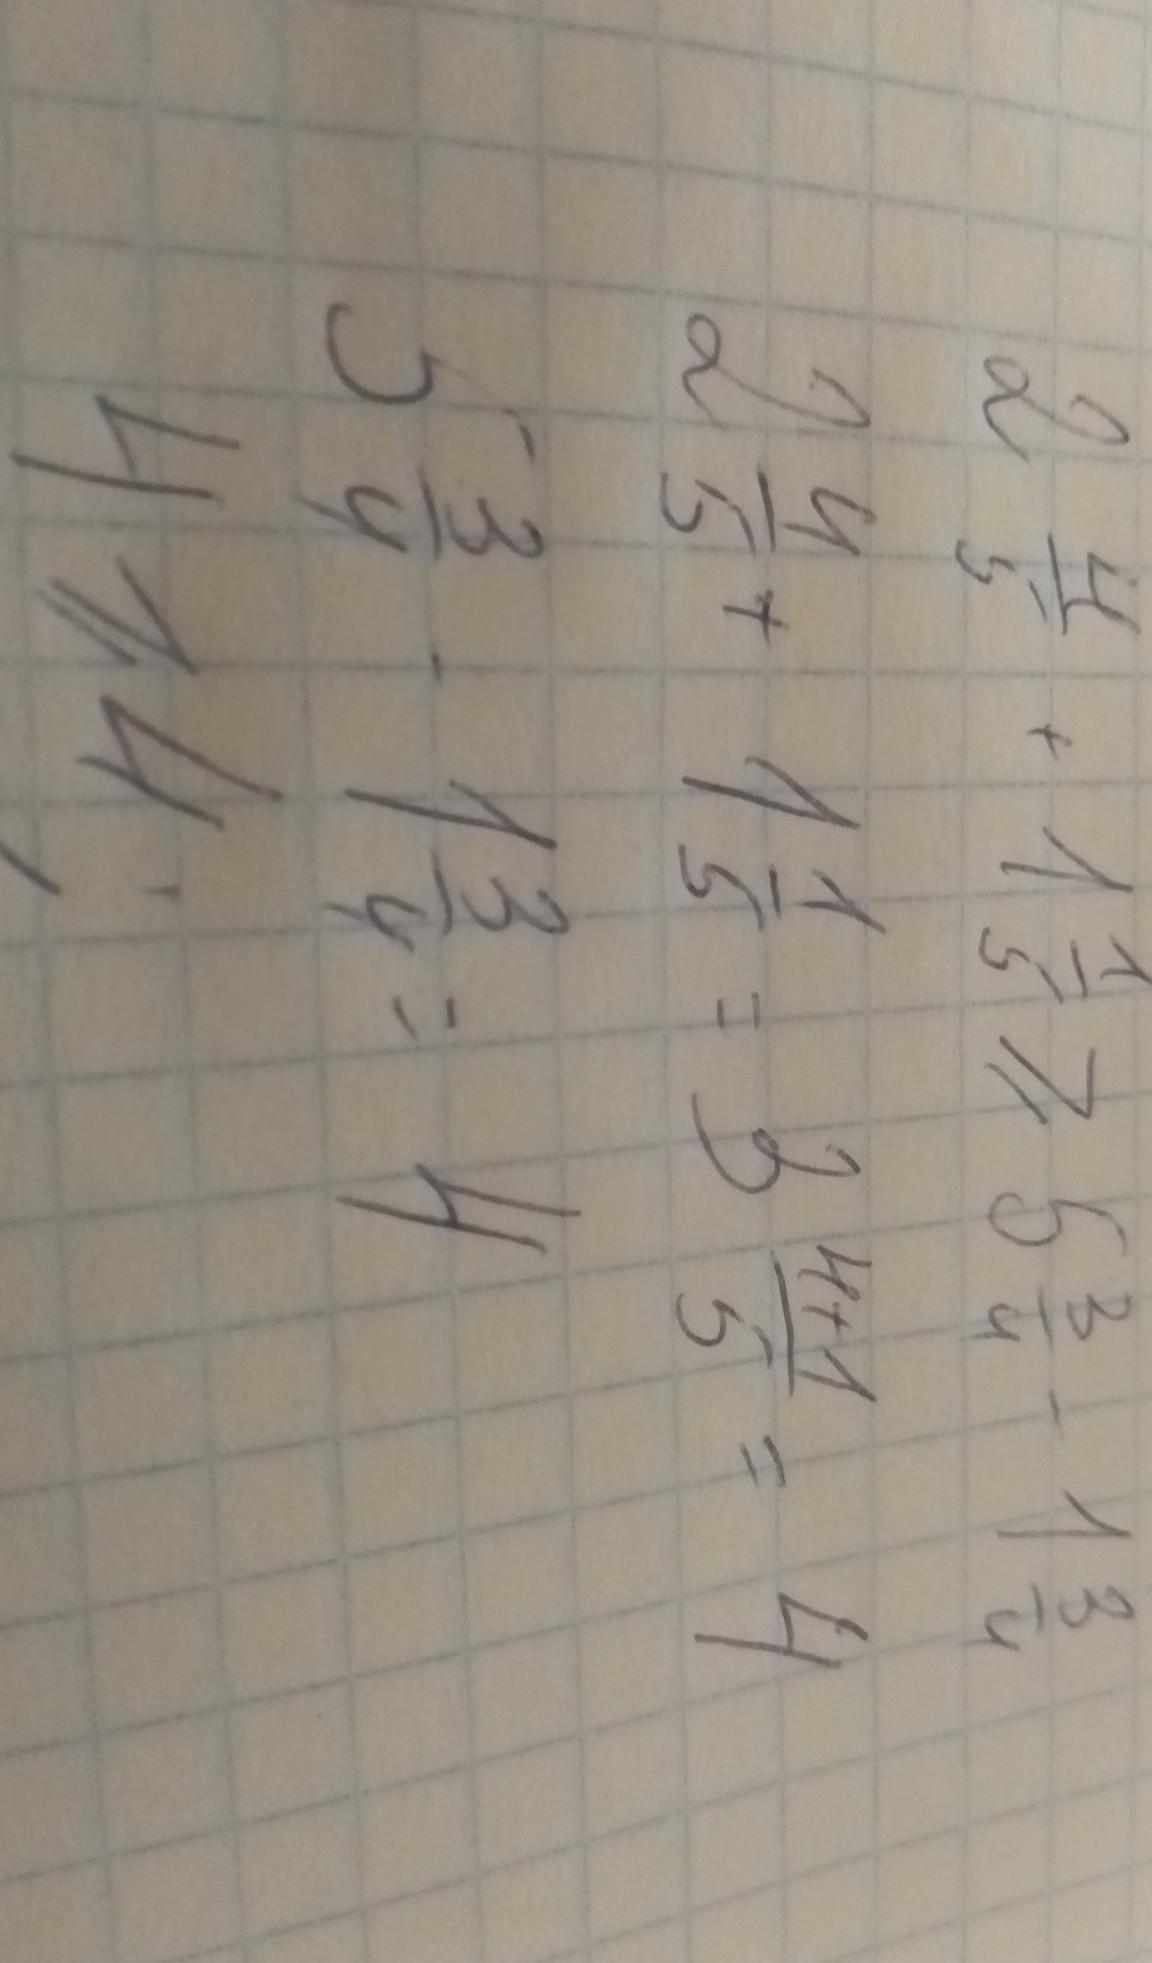 2 4/5 + 1 1/5 ⩾ 5 3/4 - 1 3/4
2 4/5 + 1 1/5 = 3 (4+1)/5 = 4
5 3/4 - 1 3/4 = 4
4 ⩾ 4;